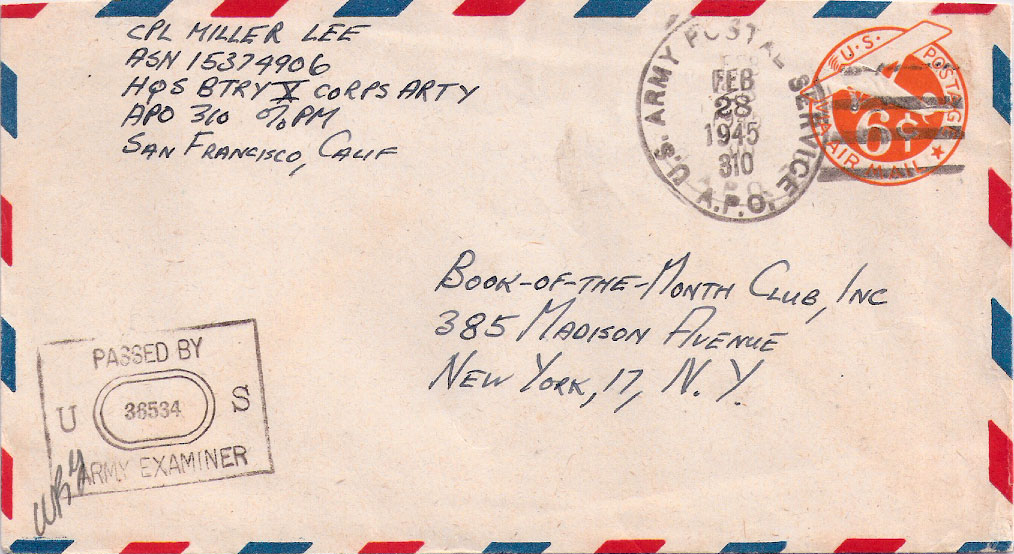 CPL MILLER LEE
ASN 15374906
HQS BTRY X CORPS ARTY
APO 310 c/o PM
SAN FRANCISCO, CALIF
U.S. ARMY POSTAL SERVICE
FEB
28
1945
310
A.P.O.
U.S. POSTAGE
6¢
VIA AIR MAIL
BOOK-OF-THE-MONTH CLUB, INC
385 MADISON AVENUE
NEW YORK, 17, N.Y.
PASSED BY
U 36534 S
ARMY EXAMINER